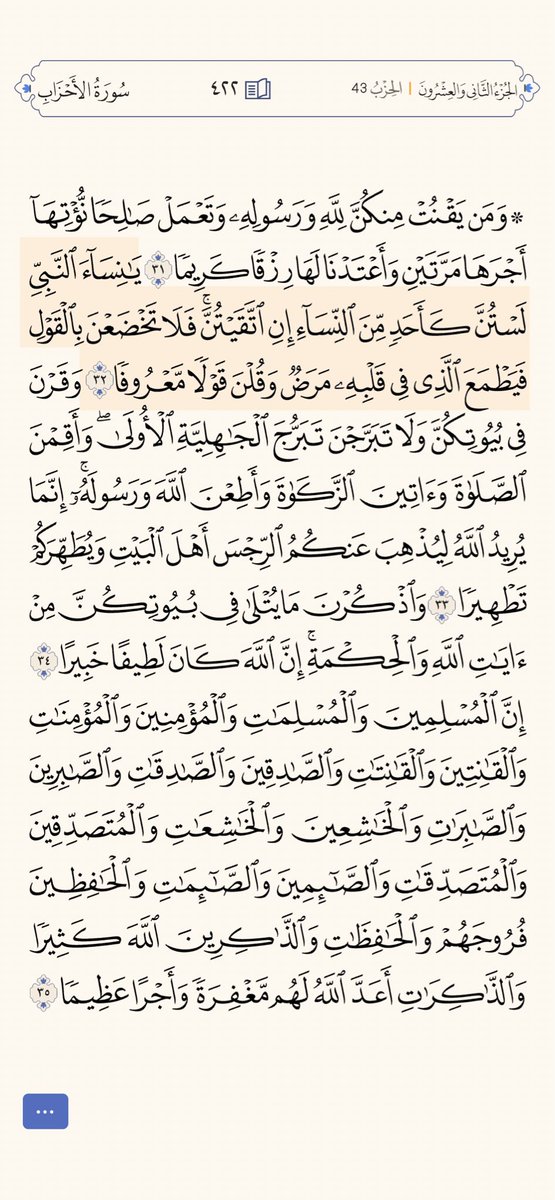 الجُزْءُ الثَّانِي وَالعِشْرُونَ | الحِزْبُ 43 ٤٢٢ سُورَةُ الأَحْزَابِ
* وَمَن يَقْنُتْ مِنكُنَّ لِلَّهِ وَرَسُولِهِۦ وَتَعْمَلْ صَٰلِحًا نُّؤْتِهَآ
أَجْرَهَا مَرَّتَيْنِ وَأَعْتَدْنَا لَهَا رِزْقًا كَرِيمًا ٣١ يَٰنِسَآءَ ٱلنَّبِيِّ
لَسْتُنَّ كَأَحَدٍ مِّنَ ٱلنِّسَآءِ إِنِ ٱتَّقَيْتُنَّۚ فَلَا تَخْضَعْنَ بِٱلْقَوْلِ
فَيَطْمَعَ ٱلَّذِى فِى قَلْبِهِۦ مَرَضٌ وَقُلْنَ قَوْلًا مَّعْرُوفًا ٣٢ وَقَرْنَ
فِى بُيُوتِكُنَّ وَلَا تَبَرَّجْنَ تَبَرُّجَ ٱلْجَٰهِلِيَّةِ ٱلْأُولَىٰۖ وَأَقِمْنَ
ٱلصَّلَوٰةَ وَءَاتِينَ ٱلزَّكَوٰةَ وَأَطِعْنَ ٱللَّهَ وَرَسُولَهُۥٓۚ إِنَّمَا
يُرِيدُ ٱللَّهُ لِيُذْهِبَ عَنكُمُ ٱلرِّجْسَ أَهْلَ ٱلْبَيْتِ وَيُطَهِّرَكُمْ
تَطْهِيرًا ٣٣ وَٱذْكُرْنَ مَا يُتْلَىٰ فِى بُيُوتِكُنَّ مِنْ
ءَايَٰتِ ٱللَّهِ وَٱلْحِكْمَةِۚ إِنَّ ٱللَّهَ كَانَ لَطِيفًا خَبِيرًا ٣٤
إِنَّ ٱلْمُسْلِمِينَ وَٱلْمُسْلِمَٰتِ وَٱلْمُؤْمِنِينَ وَٱلْمُؤْمِنَٰتِ
وَٱلْقَٰنِتِينَ وَٱلْقَٰنِتَٰتِ وَٱلصَّٰدِقِينَ وَٱلصَّٰدِقَٰتِ وَٱلصَّٰبِرِينَ
وَٱلصَّٰبِرَٰتِ وَٱلْخَٰشِعِينَ وَٱلْخَٰشِعَٰتِ وَٱلْمُتَصَدِّقِينَ
وَٱلْمُتَصَدِّقَٰتِ وَٱلصَّٰٓئِمِينَ وَٱلصَّٰٓئِمَٰتِ وَٱلْحَٰفِظِينَ
فُرُوجَهُمْ وَٱلْحَٰفِظَٰتِ وَٱلذَّٰكِرِينَ ٱللَّهَ كَثِيرًا
وَٱلذَّٰكِرَٰتِ أَعَدَّ ٱللَّهُ لَهُم مَّغْفِرَةً وَأَجْرًا عَظِيمًا ٣٥